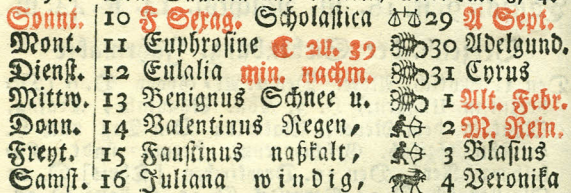 Sonnt. 10 F Sexag. Scholastica ♎ 29 A Sept.
Mont. 11 Euphrosine ☾ 2u. 39 ♏ 30 Adelgund.
Dienst. 12 Eulalia min. nachm. ♏ 31 Cyrus
Mittw. 13 Benignus Schnee u. ♏ 1 Alt. Febr.
Donn. 14 Valentinus Regen, ♐ 2 M. Rein.
Freyt. 15 Faustinus naßkalt, ♐ 3 Blasius
Samst. 16 Juliana windig, ♑ 4 Veronika